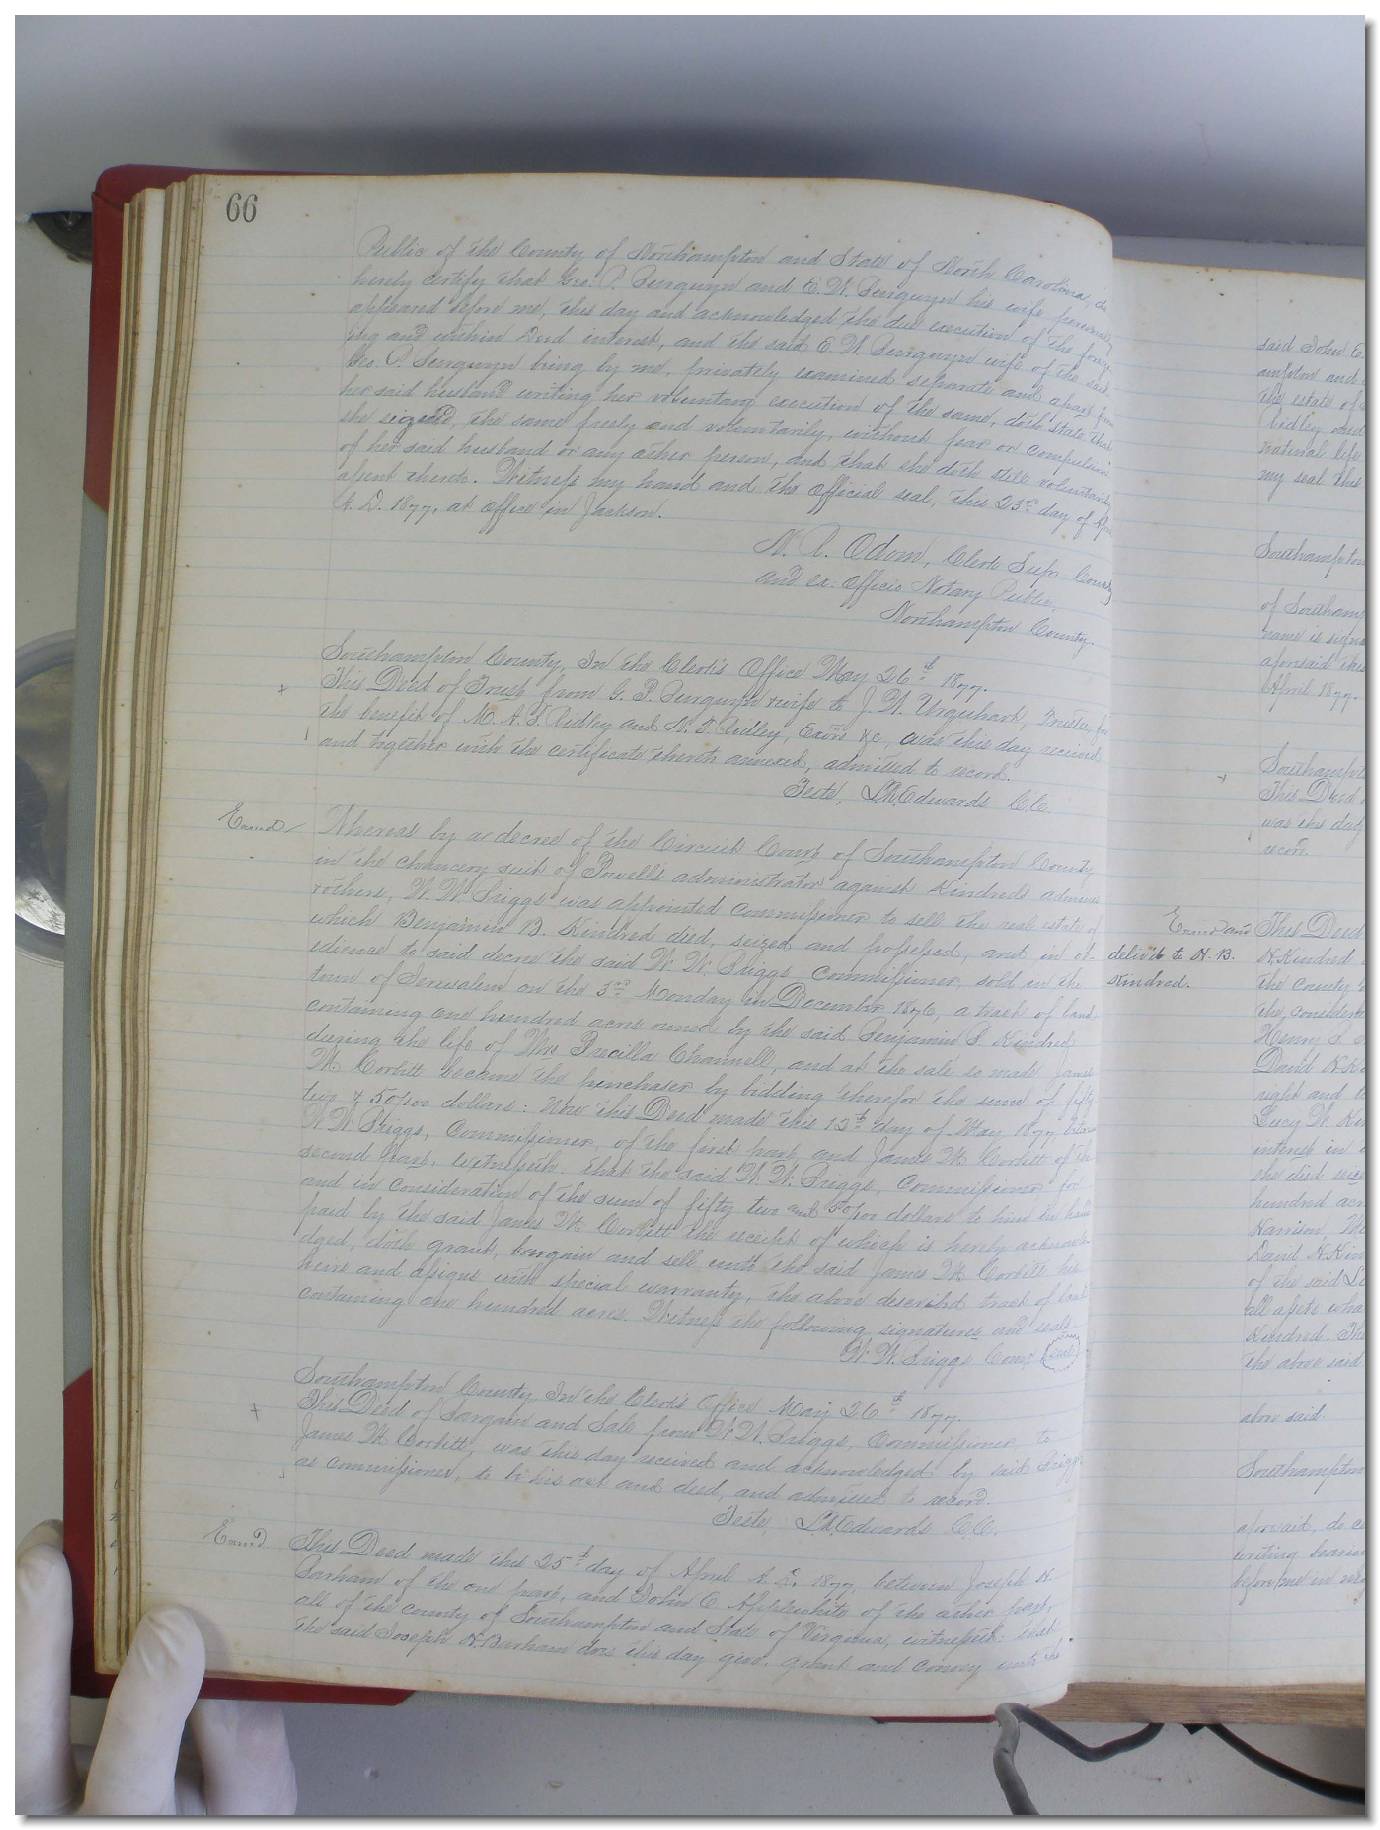 66
Public of the County of Northampton and State of North Carolina, do
hereby certify that Geo. P. Burgwyn and E. W. Burgwyn his wife personally
appeared before me, this day and acknowledged the due execution of the fore-
ing and within Deed interest, and the said E. W. Burgwyn wife of the said
Geo. P. Burgwyn being by me, privately examined separate and apart from
her said husband writing her voluntary execution of the same, doth state that
she signed, the same freely and voluntarily, without fear or compulsion
of her said husband or any other person, and that she doth still voluntarily
assent thereto. Witness my hand and the official seal, this 23rd day of April
A. D. 1877, at office in Jackson.
N. R. Odom, Clerk Supr County
and ex. officio Notary Public,
Northampton County.
Southampton County, In the Clerk's Office May 26th 1877.
This Deed of Trust from G. P. Burgwyn & wife to J. W. Urquhart, Trustee, for
the benefit of M. A. F. Ridley and N. T. Ridley, Exors &c, was this day received
and together with the certificate thereto annexed, admitted to record.
Teste, L. R. Edwards C.C.
Exmd Whereas by a decree of the Circuit Court of Southampton County
in the chancery suit of Powell's administrator against Kindred's adminis
and others, W. W. Briggs was appointed commissioner to sell the real estate of
which Benjamin B. Kindred died, seized and possessed, and in ob-
edience to said decree the said W. W. Briggs Commissioner, sold in the
town of Jerusalem on the 3rd Monday in December 1876, a tract of land
containing one hundred acres owned by the said Benjamin B. Kindred
during the life of Mrs Precilla Channell, and at the sale so made James
M. Corbitt became the purchaser by bidding therefor the sum of fifty
two & 50/100 dollars: Now this Deed made this 15th day of May 1877 between
W. W. Briggs, Commissioner, of the first part, and James M. Corbitt of the
second part, witnesseth: that the said W. W. Briggs, Commissioner for
and in consideration of the sum of fifty two and 50/100 dollars to him in hand
paid by the said James M. Corbitt the receipt of which is hereby acknowle
dged, doth grant, bargain and sell unto the said James M. Corbitt his
heirs and assigns with special warranty, the above described tract of land
containing one hundred acres. Witness the following signatures and seals
W. W. Briggs Comr seal
Southampton County In the Clerk's Office May 26th 1877.
This Deed of Bargain and Sale from W. W. Briggs, Commissioner to
James M. Corbitt, was this day received and acknowledged by said Briggs
as commissioner, to be his act and deed, and admitted to record.
Teste, L. R. Edwards C.C.
Exmd This Deed made this 25th day of April A. D. 1877, between Joseph H
Barham of the one part, and John E Applewhite of the other part,
all of the county of Southampton and State of Virginia, witnesseth: that
the said Joseph H. Barham does this day give, grant and convey unto the
said John E.
ampton and
the estate of
Ridley and
natural life
my seal this
Southampton
of Southamp
name is signed
aforesaid this
April 1877.
Southampt
This Deed
was this day
record.
Exmd and
delivd to H. B.
Kindred.
This Deed
H. Kindred
the county
the consider
Henry B.
David H. Ki
right and
Lucy W. Kin
interest in
she died
hundred acr
Harrison,
David H. Kin
of the said
all assets wha
Kindred. Th
the above said
above said
Southampton
aforesaid, do ce
writing bearin
before me in